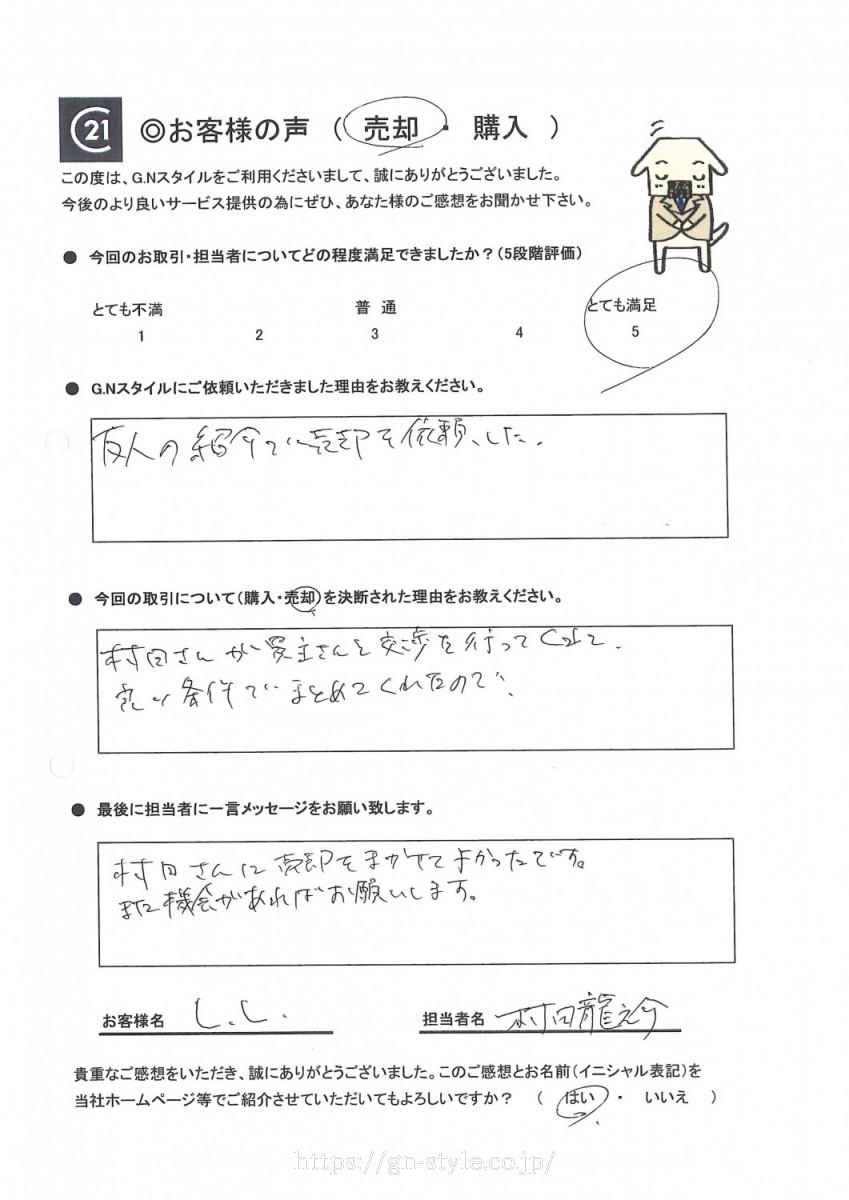 C21
◎お客様の声 ( 売却 ・ 購入 )
この度は、G.Nスタイルをご利用くださいまして、誠にありがとうございました。
今後のより良いサービス提供の為にぜひ、あなた様のご感想をお聞かせ下さい。
● 今回のお取引・担当者についてどの程度満足できましたか？(5段階評価)
とても不満 普 通 とても満足
1 2 3 4 5
● G.Nスタイルにご依頼いただきました理由をお教えください。
友人の紹介で売却を依頼した.
● 今回の取引について(購入・売却)を決断された理由をお教えください。
村田さんが買主さんと交渉を行ってくれて、
良い条件でまとめてくれたので、
● 最後に担当者に一言メッセージをお願い致します。
村田さんに売却をまかせてよかったです。
また機会があればお願いします。
お客様名 L.L. 担当者名 村田龍之介
貴重なご感想をいただき、誠にありがとうございました。このご感想とお名前(イニシャル表記)を
当社ホームページ等でご紹介させていただいてもよろしいですか？ ( はい ・ いいえ )
https://gn-style.co.jp/